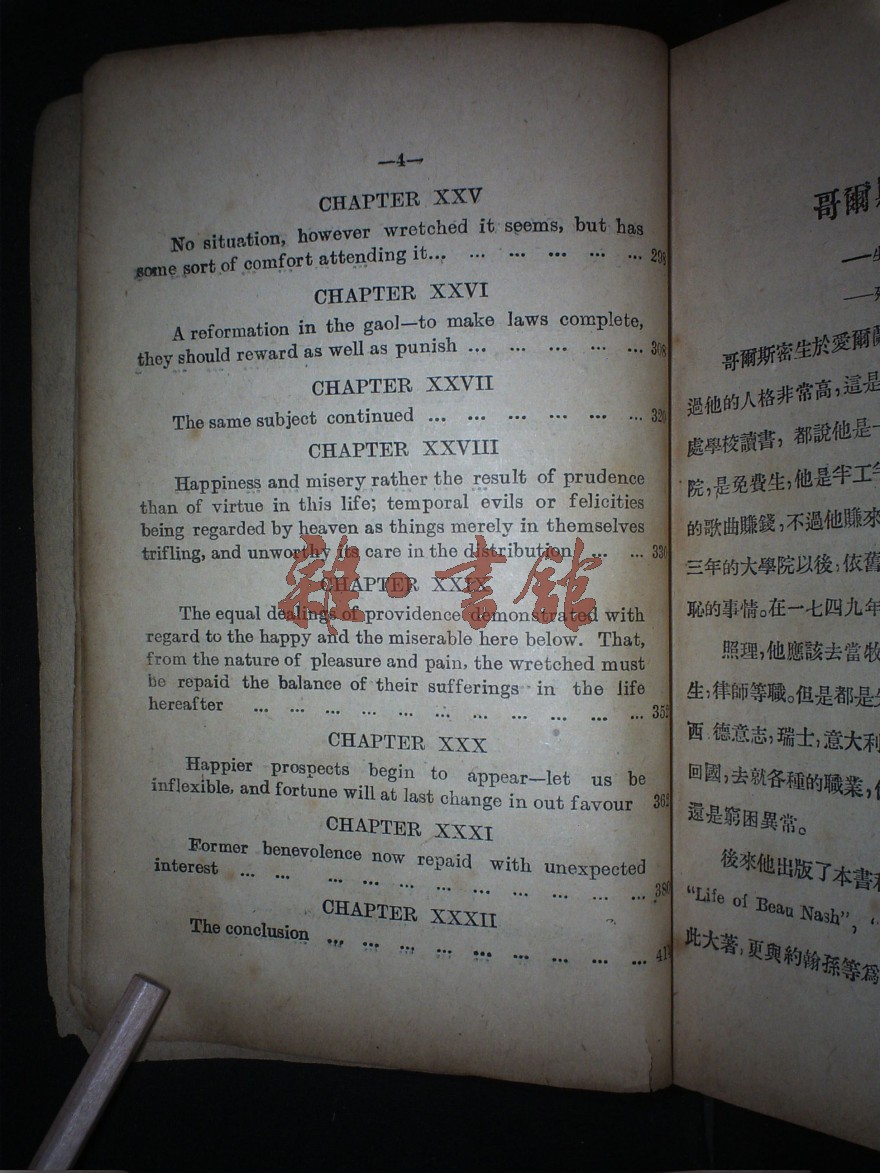 —4—
CHAPTER XXV
No situation, however wretched it seems, but has
some sort of comfort attending it... ... ... ... ... ... 298
CHAPTER XXVI
A reformation in the gaol—to make laws complete,
they should reward as well as punish ... ... ... ... ... 308
CHAPTER XXVII
The same subject continued ... ... ... ... ... ... 320
CHAPTER XXVIII
Happiness and misery rather the result of prudence
than of virtue in this life; temporal evils or felicities
being regarded by heaven as things merely in themselves
trifling, and unworthy its care in the distribution ... ... 330
CHAPTER XXIX
The equal dealings of providence demonstrated with
regard to the happy and the miserable here below. That,
from the nature of pleasure and pain, the wretched must
be repaid the balance of their sufferings in the life
hereafter ... ... ... ... ... ... ... ... ... ... ... 352
CHAPTER XXX
Happier prospects begin to appear—let us be
inflexible, and fortune will at last change in out favour 362
CHAPTER XXXI
Former benevolence now repaid with unexpected
interest ... ... ... ... ... ... ... ... ... ... 380
CHAPTER XXXII
The conclusion ... ... ... ... ... ... ... ... ... 41
雜·書館
哥爾
哥爾斯密生於愛爾蘭
過他的人格非常高,這是
處學校讀書,都說他是一
院,是免費生,他是半工
的歌曲賺錢,不過他賺來
三年的大學院以後,依舊
恥的事情。在一七四九年
照理,他應該去當牧
生,律師等職。但是都是
西,德意志,瑞士,意大利
回國,去就各種的職業,
還是窮困異常。
後來他出版了本書
“Life of Beau Nash”, “
此大著,更與約翰孫等為